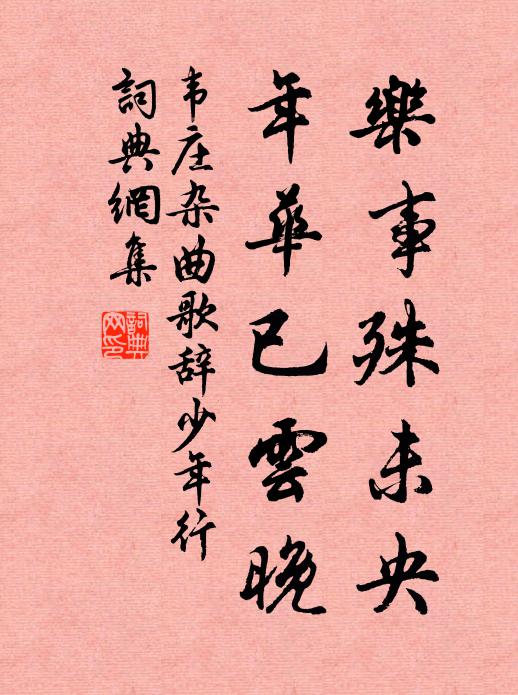 樂事殊未央
年華已雲晚
韦庄杂曲歌辞少年行
詞典網集
詞典网印